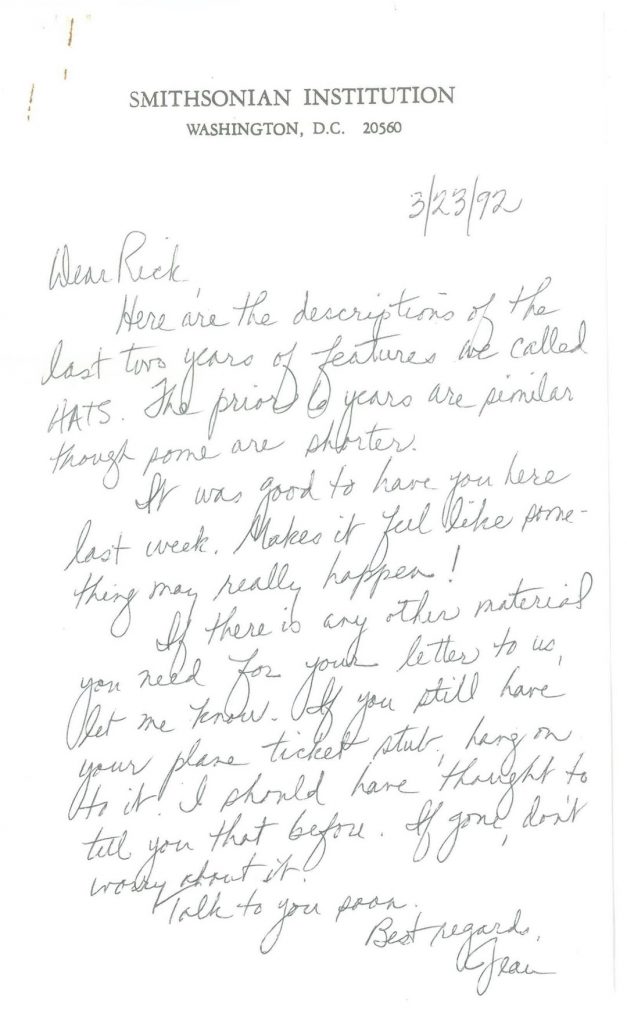 SMITHSONIAN INSTITUTION
WASHINGTON, D.C. 20560
3/23/92
Dear Rick,
Here are the descriptions of the
last two years of features we called
HATS. The prior 6 years are similar
though some are shorter.
It was good to have you here
last week. Makes it feel like some-
thing may really happen!
If there is any other material
you need for your letter to us,
let me know. If you still have
your plane ticket stub, hang on
to it! I should have thought to
tell you that before. If gone, don't
worry about it.
Talk to you soon.
Best regards,
Jean